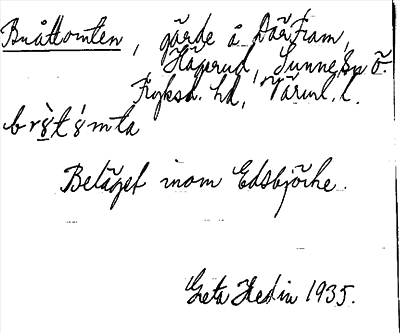 Bråttomten, gärde å Där Fram,
Häperud, Sunne Sn Ö.
Fryksd. hd, Värml. l.
Beläget inom Edsbjörke.
Greta Hedin 1935.